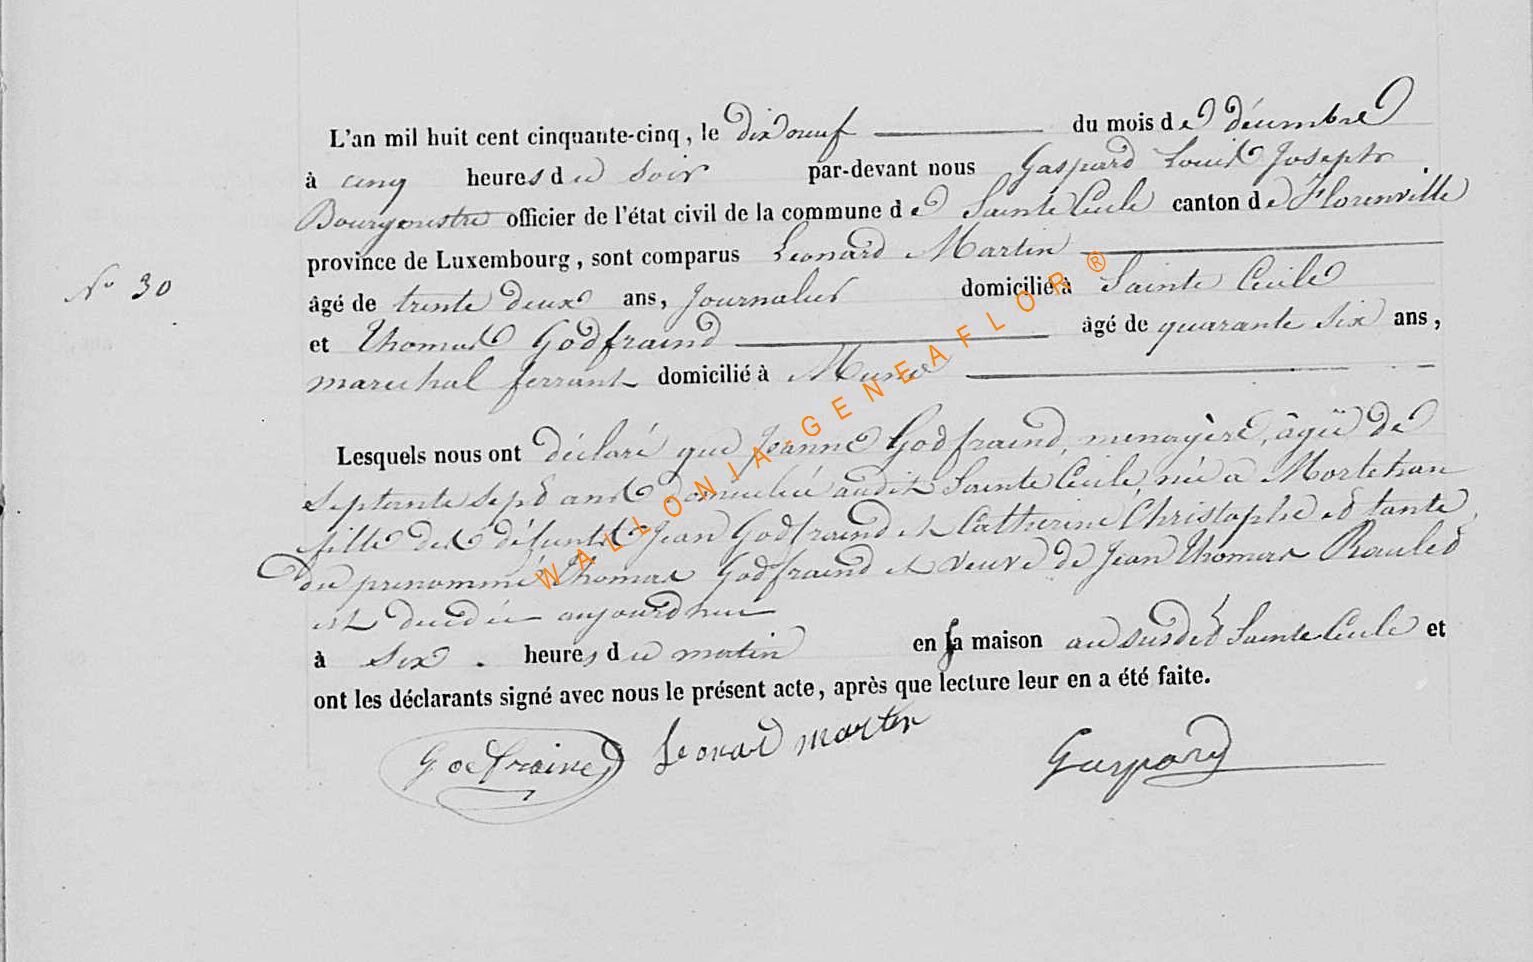 L'an mil huit cent cinquante-cinq, le dix neuf du mois de décembre
à cinq heures du soir par-devant nous Gaspard Louis Joseph
Bourgmestre officier de l'état civil de la commune de Sainte Cécile canton de Florenville
province de Luxembourg, sont comparus Léonard Martin
N° 30
âgé de trente deux ans, Journalier domicilié à Sainte Cécile
et Thomas Godfraind âgé de quarante six ans,
marechal ferrant domicilié à Muno
Lesquels nous ont déclaré que Jeanne Godfraind, menagère, âgée de
septante sept ans domiciliée audit Sainte Cécile née a Mortehan
fille des défunts Jean Godfraind et Catherine Christophe et tante
du prenommé Thomas Godfraind et veuve de Jean Thomas Raulet
est decedée aujourd'hui
à six heures du matin en sa maison au susdit Sainte Cécile et
ont les déclarants signé avec nous le présent acte, après que lecture leur en a été faite.
Godfraind Leonard martin Gaspard
WALLONIA-GENEAFLOR®